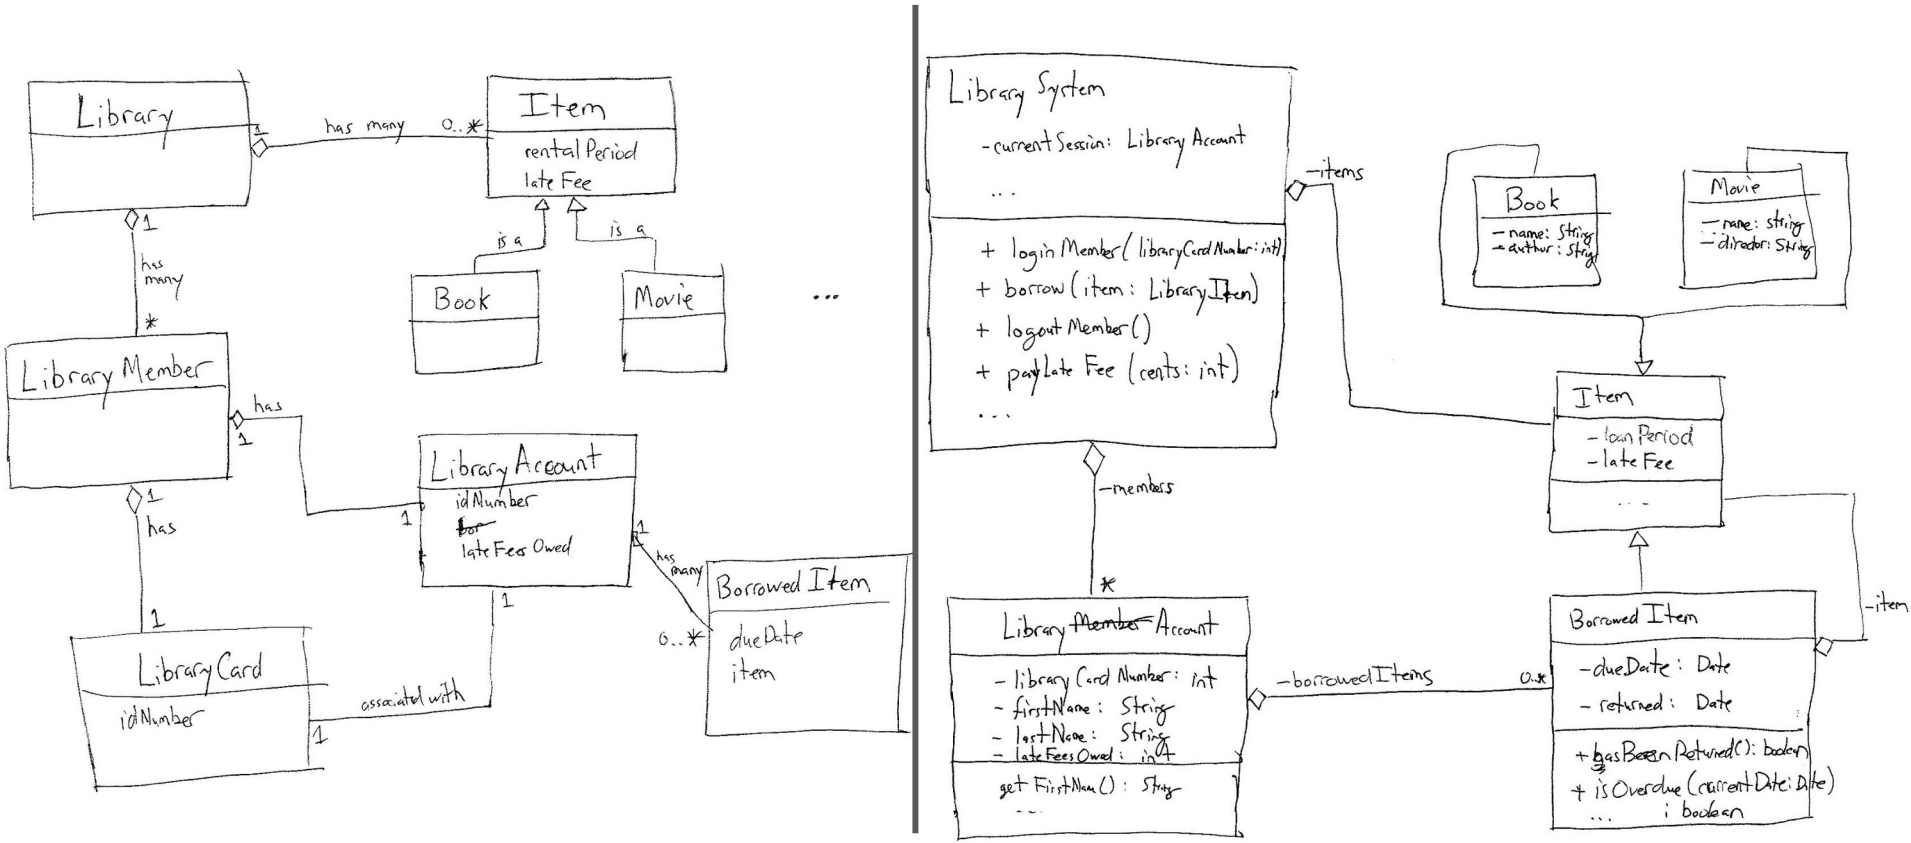 Library
1
has many
0..*
Item
rentalPeriod
lateFee
is a
is a
Book
Movie
...
1
has
many
*
Library Member
has
1
1
has
1
Library Account
idNumber
bor
lateFees Owed
1
1
1
has
many
0..*
Borrowed Item
dueDate
item
Library Card
idNumber
associated with
1
Library System
-currentSession: Library Account
...
+ loginMember(libraryCardNumber:int)
+ borrow(item: LibraryItem)
+ logoutMember()
+ payLateFee (cents: int)
...
-items
Book
-name: String
-author: String
Movie
-name: string
-director: String
Item
-loanPeriod
-lateFee
...
-members
*
Library Member Account
- library Card Number: int
- firstName: String
- lastName: String
- lateFeesOwed: int
get FirstNam(): String
...
-borrowedItems
0..*
-item
Borrowed Item
-dueDate: Date
- returned: Date
+hasBeenReturned(): boolean
+ isOverdue(currentDate:Date)
: boolean
...